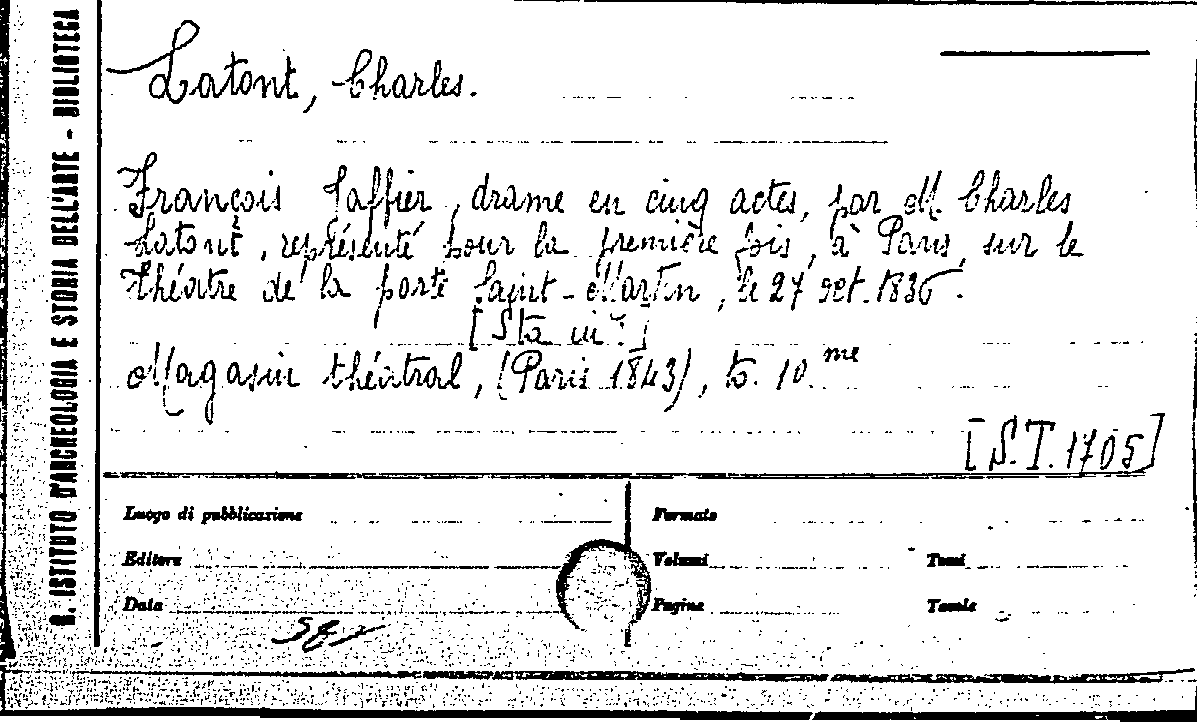 R. ISTITUTO D'ARCHEOLOGIA E STORIA DELL'ARTE - BIBLIOTECA
Latont, Charles.
François Jaffier, drame en cinq actes, par M. Charles
Latont, représenté pour la première fois, à Paris, sur le
théâtre de la porte Saint-Martin, le 27 oct. 1836.
[Sta in:]
Magasin théatral, (Paris 1843), to. 10.me
[S.T. 1705]
Luogo di pubblicazione
Formato
Editore
Volumi
Tomi
Data
Pagine
Tavole